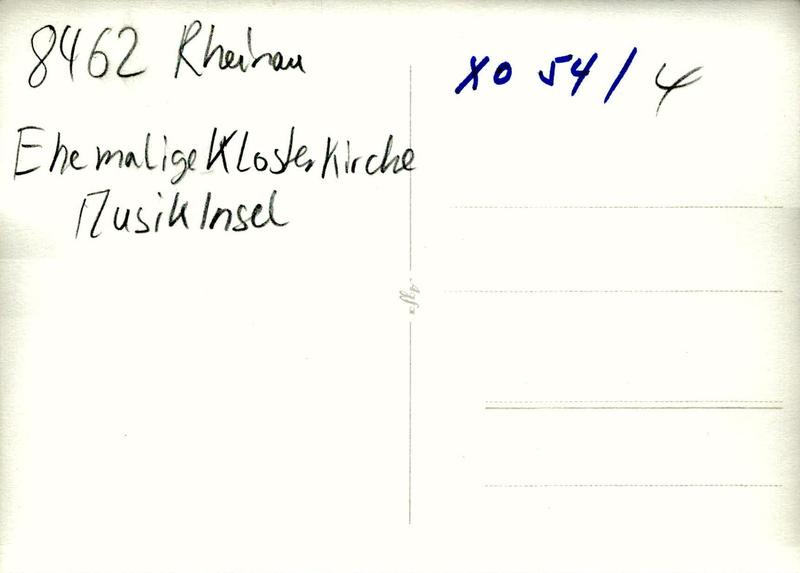 8462 Rheinau
Ehemalige Klosterkirche
Musikinsel
XO 54/4
Agfa